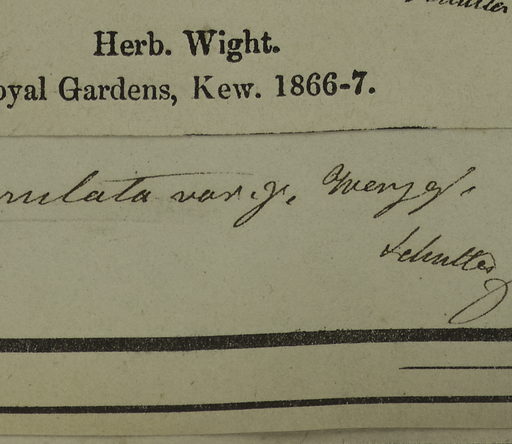 Herb. Wight.
oyal Gardens, Kew. 1866-7.
rulata var. γ.
Schultes